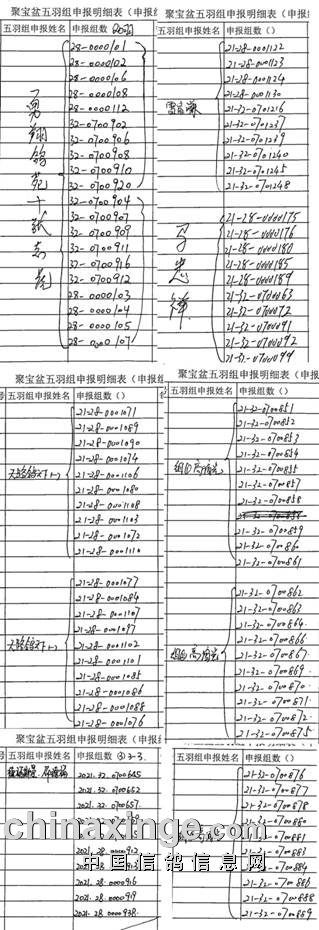 聚宝盆五羽组申报明细表（申报
五羽组申报姓名 申报组数 20羽
28-0000101
28-0000102
28-0000106
28-0000108
28-0000112
32-0700902
32-0700906
32-0700908
32-0700910
32-0700920
32-0700904
32-0700907
32-0700909
32-0700911
32-0700916
32-0700912
28-0000103
28-0000104
28-0000105
28-0000107
聚宝盆五羽组申报明细表（申报
五羽组申报姓名 申报组数（）
21-28-0001122
21-28-0001123
21-28-0001124
21-28-0001130
21-32-0701216
21-32-0701237
21-32-0701239
21-32-0701240
21-32-0701245
21-32-0701248
21-28-0000175
21-28-0000176
21-28-0000180
21-28-0000185
21-28-0000189
21-32-0700063
21-32-0700072
21-32-0700091
21-32-0700092
21-32-0700099
聚宝盆五羽组申报明细表（申报
号 五羽组申报姓名 申报组数（）
21-28-0001071
21-28-0001089
21-28-0001090
21-28-0001074
21-28-0001106
21-28-0001080
21-28-0001108
21-28-0001103
21-28-0001072
21-28-0001110
21-28-0001077
21-28-0001084
21-28-0001107
21-28-0001097
21-28-0001102
21-28-0001101
21-28-0001085
21-28-0001086
21-28-0001088
21-28-0001076
聚宝盆五羽组申报明细表（申报
五羽组申报姓名 申报组数（）
21-32-0700851
21-32-0700852
21-32-0700853
21-32-0700854
21-32-0700855
21-32-0700857
21-32-0700858
21-32-0700859
21-32-0700860
21-32-0700861
21-32-0700862
21-32-0700863
21-32-0700864
21-32-0700866
21-32-0700867
21-32-0700869
21-32-0700870
21-32-0700871
21-32-0700872
21-32-0700875
聚宝盆五羽组申报明细表（申报
号 五羽组申报姓名 申报组数（
2021.32.0700645
2021.32.0700652
2021.32.0700657
2021.28.000912
2021.28.000913
2021.28.000916
2021.28.000919
2021.28.000938
五羽组申报姓名 申报组数（）
21-32-0700876
21-32-0700877
21-32-0700878
21-32-0700880
21-32-0700881
21-32-0700883
21-32-0700884
21-32-0700886
21-32-0700888
21-32-0700889
chinaxinge.com
中国信鸽信息网